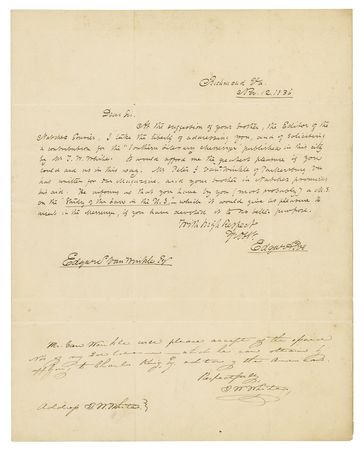 Richmond Va.
Nov. 12. 1836
Dear Sir.
At the suggestion of your brother, the Editor of the
Natchez Courier, I take the liberty of addressing you, and of soliciting
a contribution for the "Southern Literary Messenger" published in this city
by Mr T. W. White. It would afford me the greatest pleasure if you
could aid us in this way. Mr Peter J. Van Winkle of Parkersburg Va
has written for our Magazine, and your brother in Natchez promises
his aid. He informs us that you have by you (most probably) a M.S.
on the Study of the Law in the U.S. which it would give us pleasure to
insert in the Messenger, if you have devoted it to no better purpose.
With high respect
Yr Ob. St.
Edgar A Poe
Edgar S. Van Winkle Esqr
Mr Van Winkle will please accept of the
Nos of my
to Charles King, editor of the American.
Respectfully,
T. W. White
Address T. W. White